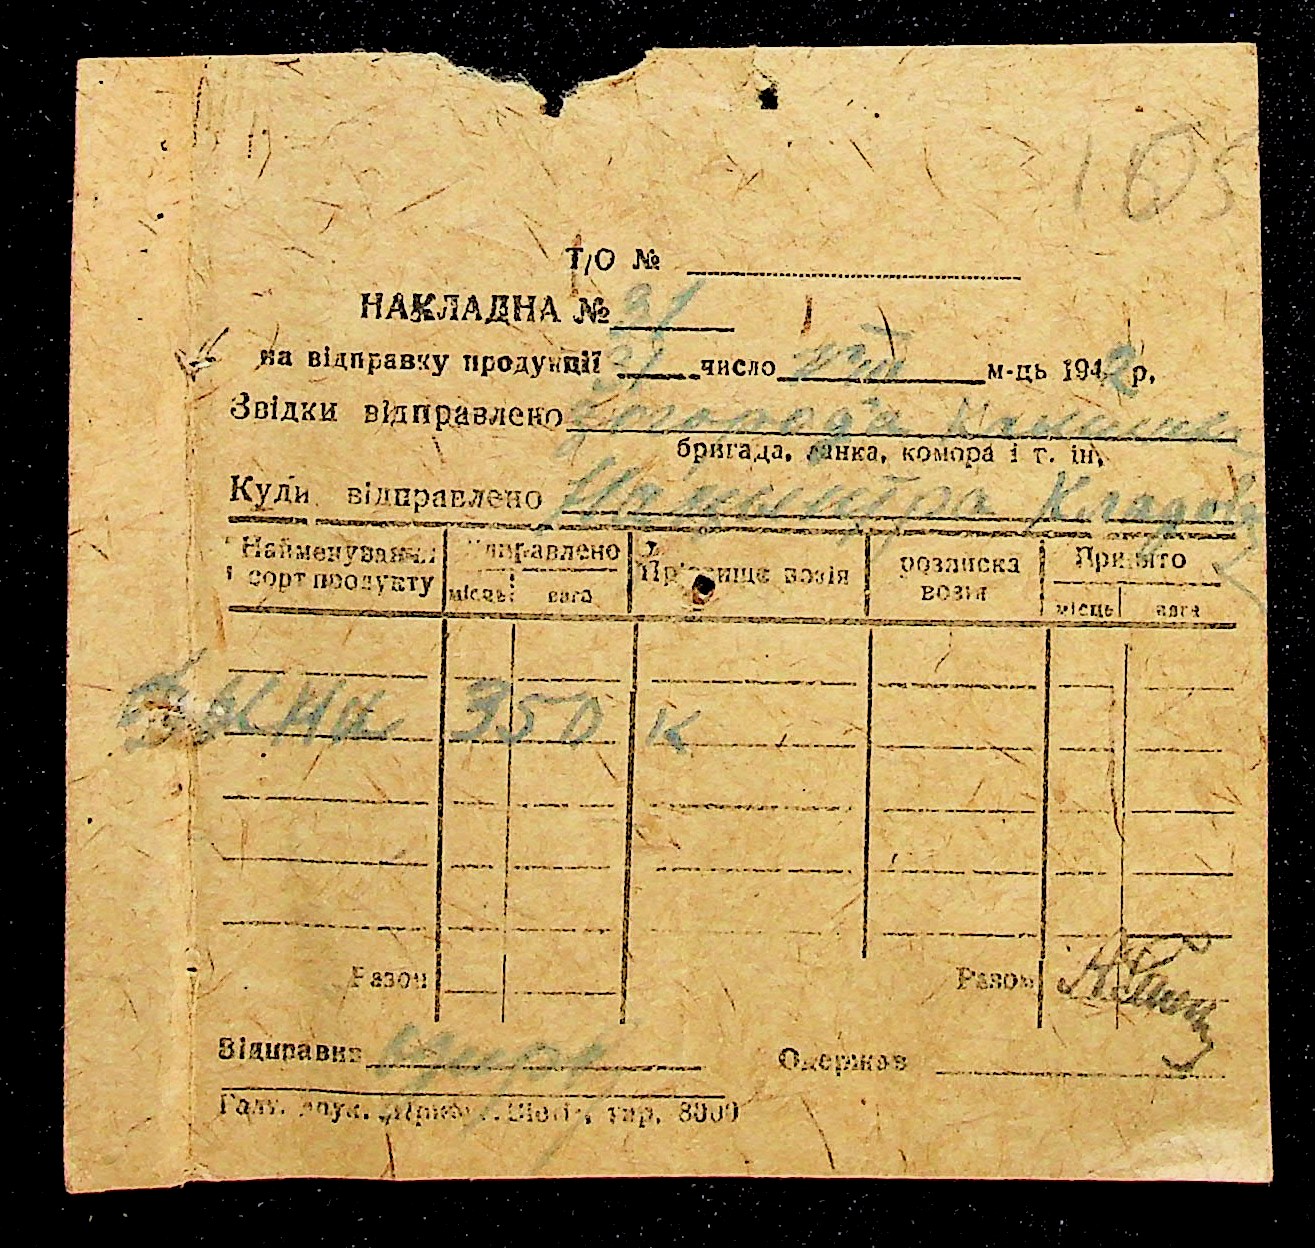 105
Т/О №
НАКЛАДНА № 31
на відправку продукції 31 число VIII м-ць 1942 р.
Звідки відправлено з города
бригада, ланка, комора і т. ін.
Куди відправлено На центра Кладов
Найменування і сорт продукту
Відправлено
місць вага
Прізвище возія
розписка возія
Прийнято
місць вага
350 к
Разом
Разом
Відправив
Одержав
Галу. друк. тир. 8000